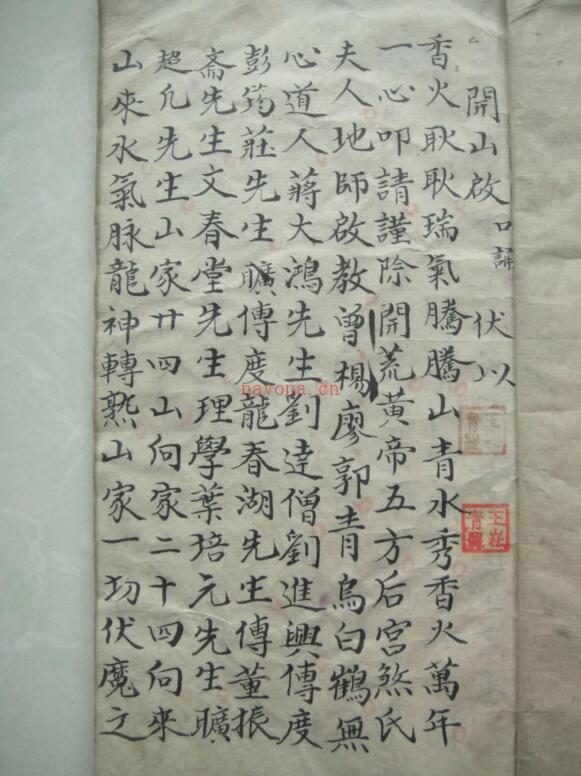 開山啟 口誦 伏以
香火耿耿瑞氣騰騰山青水秀香火萬年
一心叩請謹除開荒黃帝五方后宮煞氏
夫人地師啟教曾楊廖郭青烏白鶴無
心道人蔣大鴻先生劉達僧劉進興傳度
彭筠莊先生曠傳度龍春湖先生傳董振
斋先生文春堂先生理學葉培元先生曠
超允先生山家廿四山向家二十四向來
山來水氣脉龍神轉煞山家一切伏魔之
nayona.cn